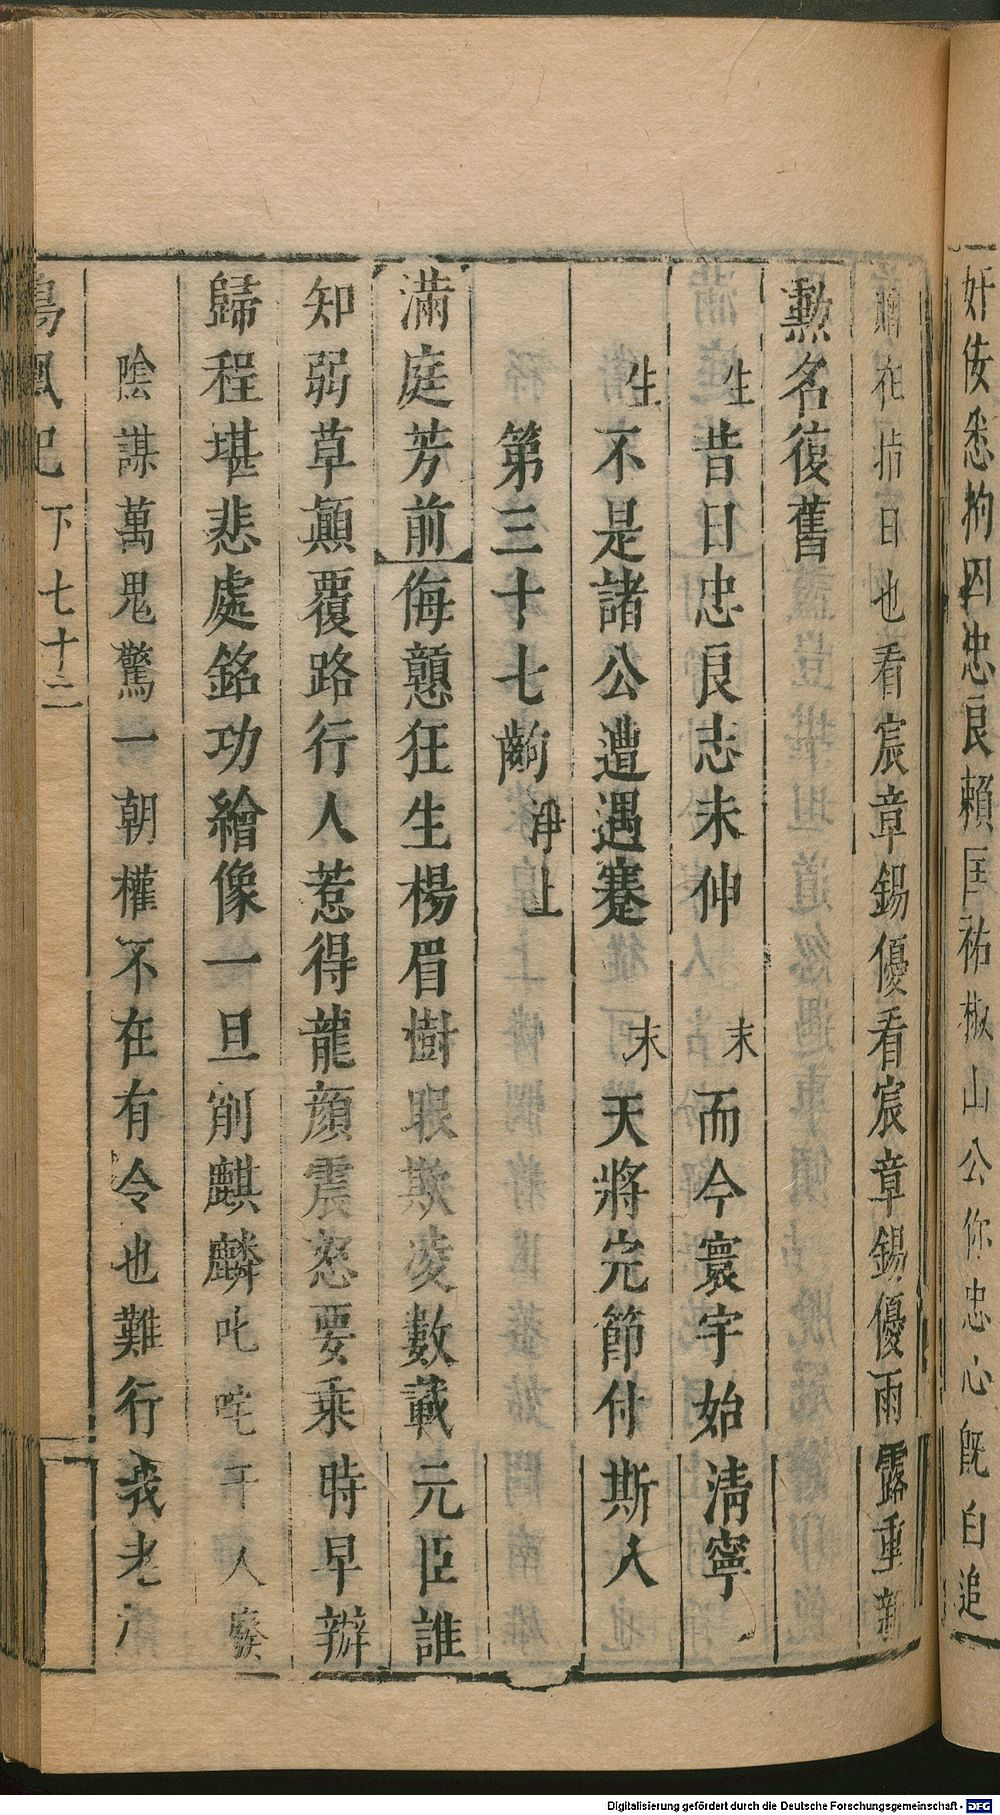 奸佞悉拘囚忠良賴匡祐椒山公你忠心旣白追
在指日也看宸章錫優看宸章錫優雨露重新
勲名復舊
生昔日忠良志未伸 末而今寰宇始清寧
生不是諸公遭遇蹇 末天將完節付斯人
第三十七齣淨上
滿庭芳前侮戇狂生楊眉樹眼欺凌數載元臣誰
知弱草顛覆路行人惹得龍顔震怒要乘時早辦
歸程堪悲處銘功繪像一旦削麒麟叱咤千人廢
陰謀萬鬼驚一朝權不在有令也難行我老
鳳記 下 七十二
Digitalisierung gefördert durch die Deutsche Forschungsgemeinschaft - DFG